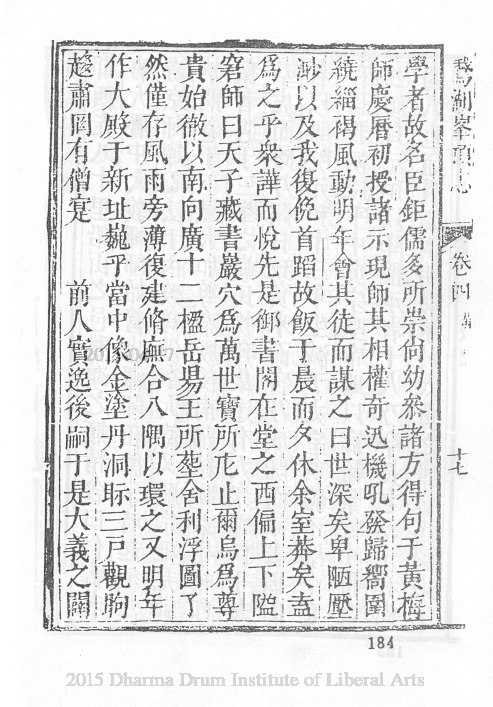 鵝湖峯頂志
卷四
十七
學者故名臣鉅儒多所崇尚幼叅諸方得句于黃梅
師慶曆初授諸示現師其相權奇迅機吼發歸嚮圍
繞緇褐風動明年會其徒而謀之曰世深矣卑陋壓
渺以及我復俛首蹈故飯于晨而夕休余室莽矣盍
爲之乎衆譁而悅先是御書閣在堂之西偏上下隘
窘師曰天子藏書巖穴爲萬世寶所庇止爾烏爲尊
貴始徹以南向廣十二楹岳昜王所塟舍利浮圖了
然僅存風雨旁薄復建脩廡合八隅以環之又明年
作大殿于新址巍乎當中像金塗丹洞眎三戶觀眴
趍肅罔有僧寔　前人實逸後嗣于是大義之關
184
2015 Dharma Drum Institute of Liberal Arts